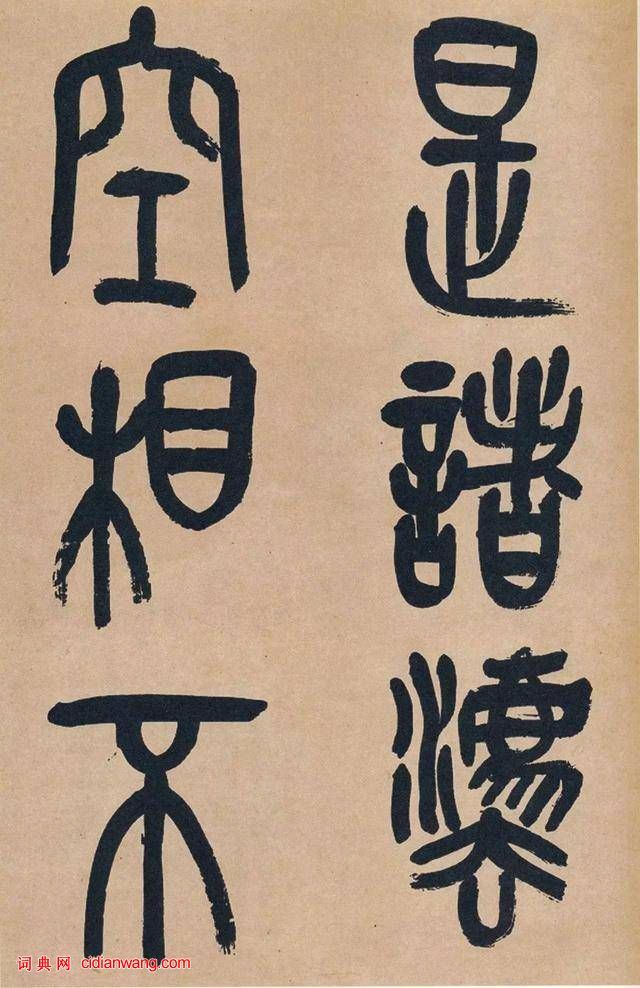 是諸灋
空相不
词典网 cidianwang.com